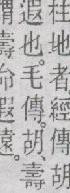 在地者經傳
遐也毛傳胡壽
謂壽命遐遠